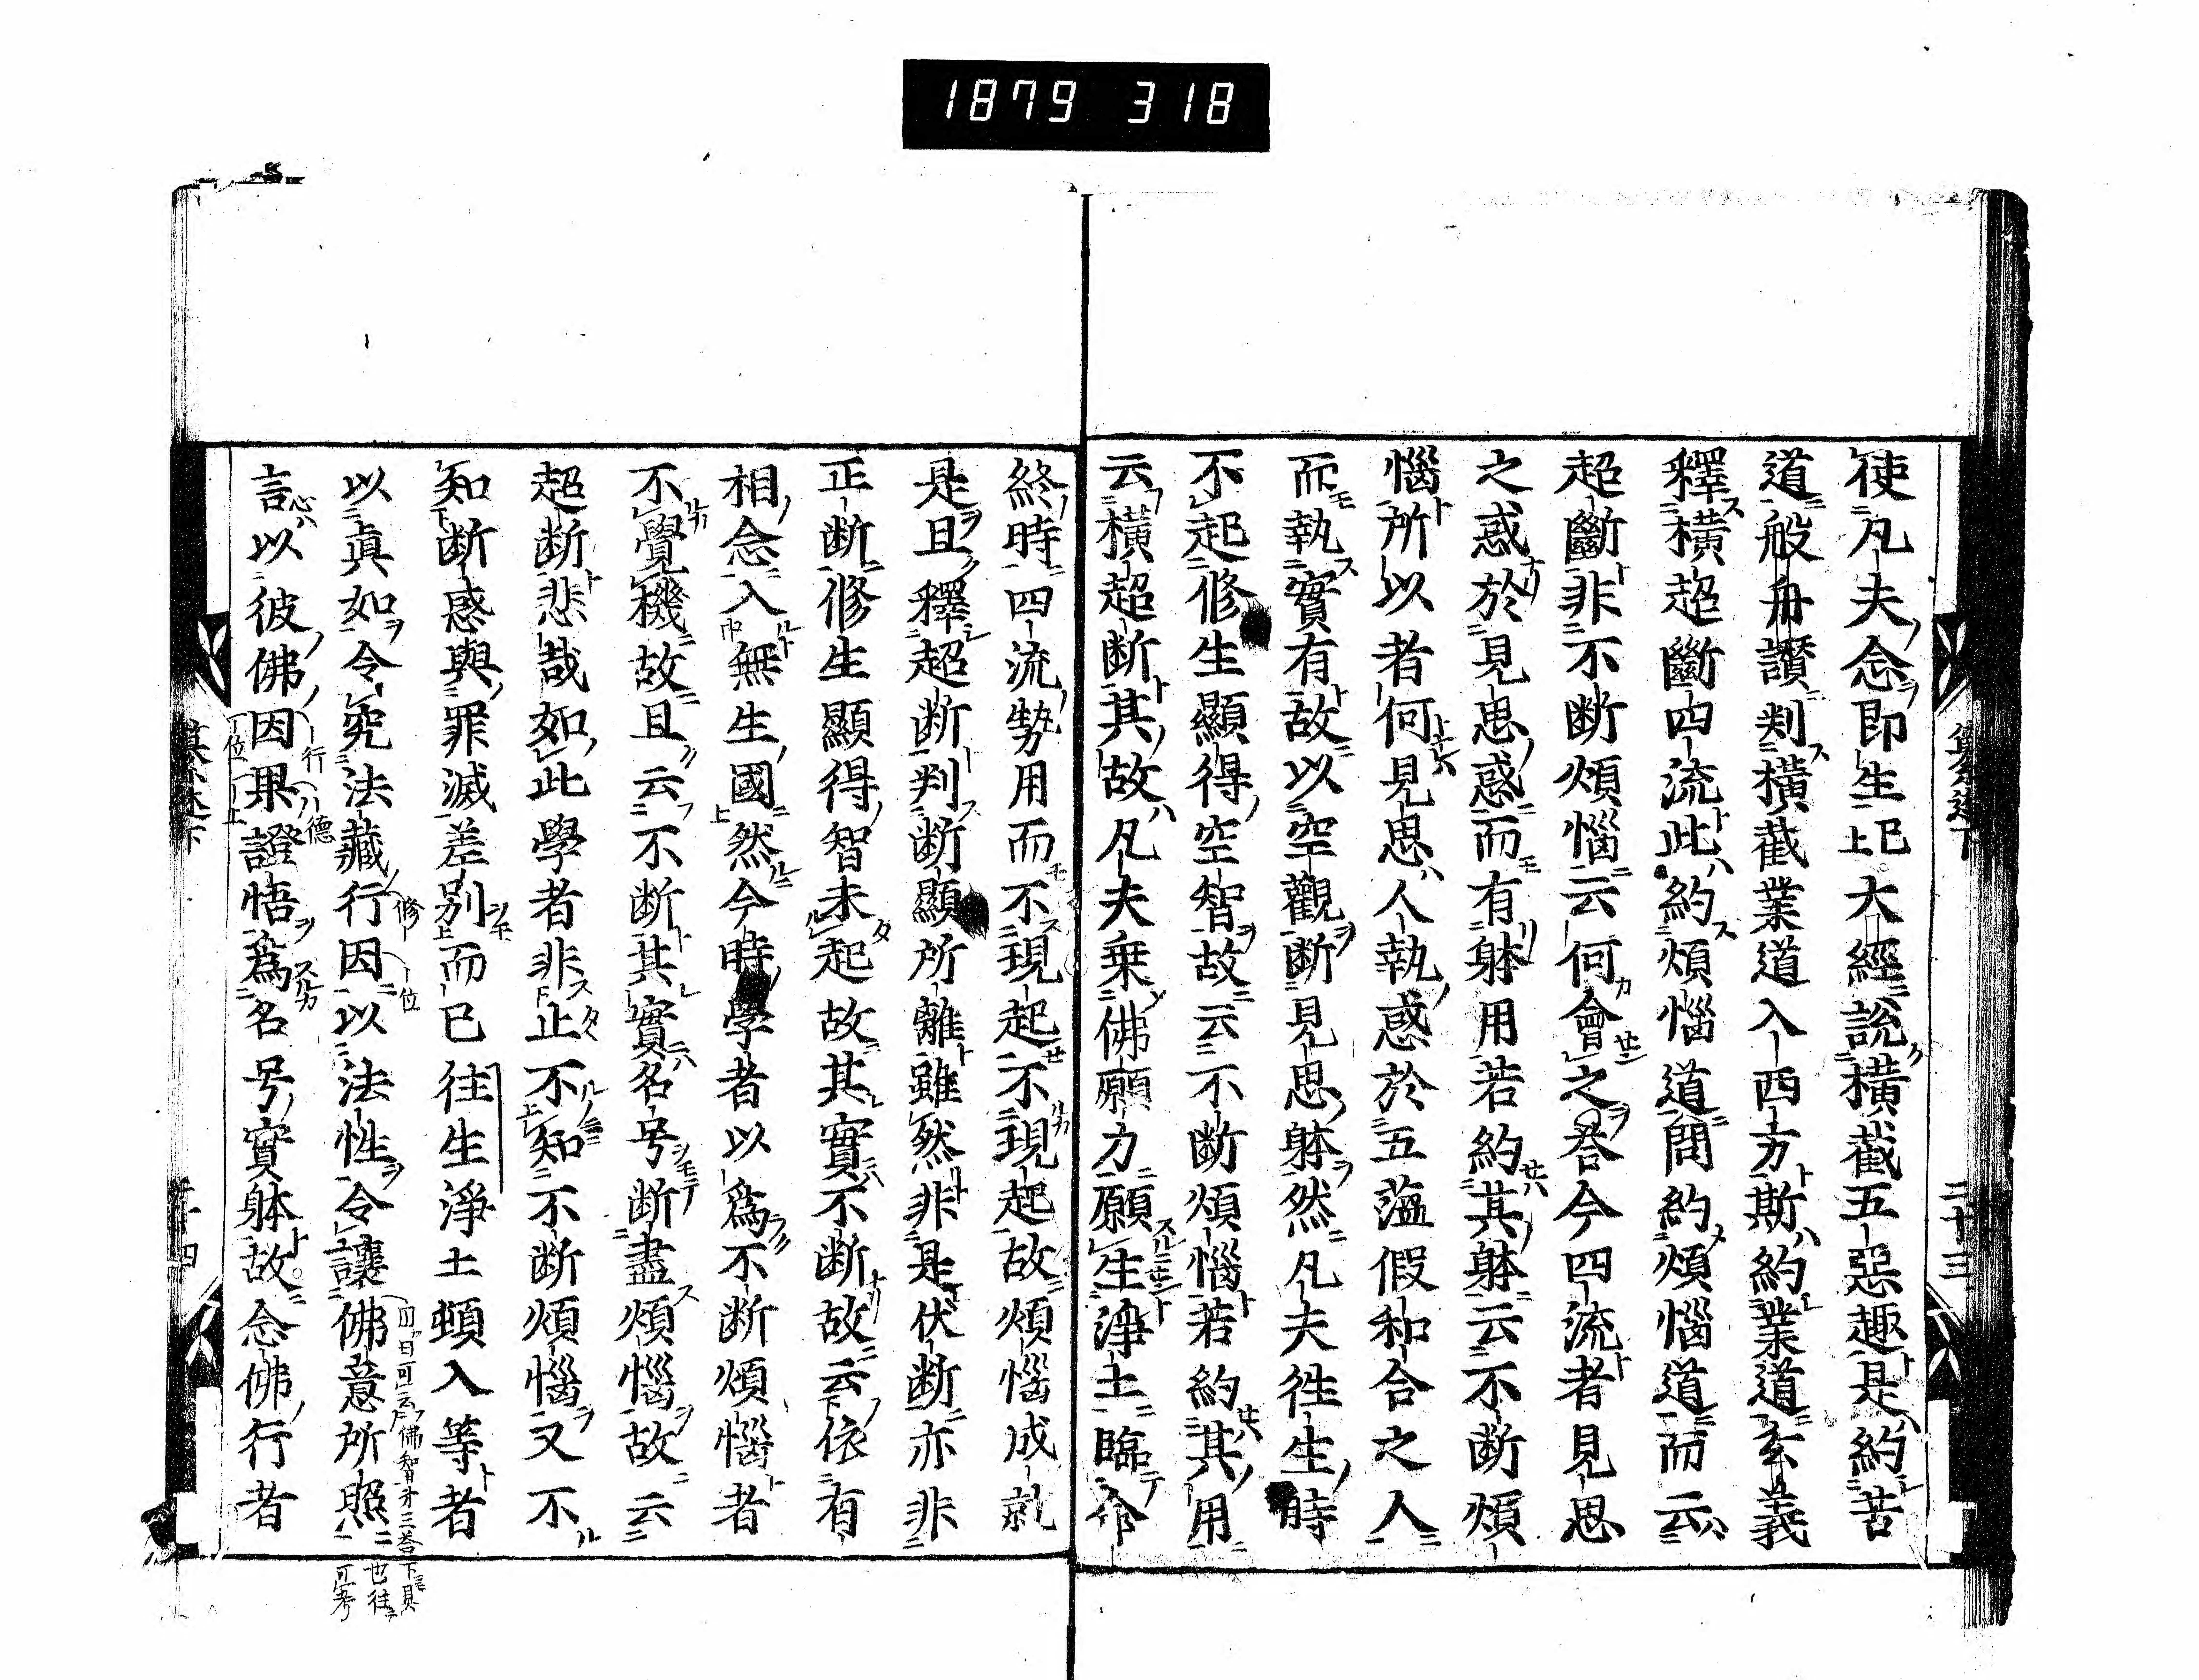 1879 318
使凡夫念即生上巳大經說橫截五惡趣是約苦
道般舟讚判橫截業道入西方斯約業道玄義
釋橫超斷四流此約煩惱道問約煩惱道而云
超斷非不断煩惱云何會之荅今四流者見思
之惑於見思惑而有躰用若約其躰云不断煩
惱所以者何見思人執惑於五蕰假和合之人
而執實有故以空觀断見思躰然凡夫徃生時
不起修生顯得空智故云不断煩惱若約其用
云橫超断其故凡夫乗佛願力願生淨土臨命
終時四流勢用而不現起不現起故煩惱成就
是且釋超断判断顯所離雖然非是伏断亦非
正断修生顯得智未起故其實不断故云依有
相念入無生國然今時學者以為不断煩惱者
不覺機故且云不断其實名号断盡煩惱故云
超断悲哉如此學者非止不知不断煩惱又不
知断惑與罪滅差別而已往生淨土頓入等者
以眞如令究法藏行因以法性令讓佛意所照
言以彼佛因果證悟爲名号實躰故念佛行者
二十三